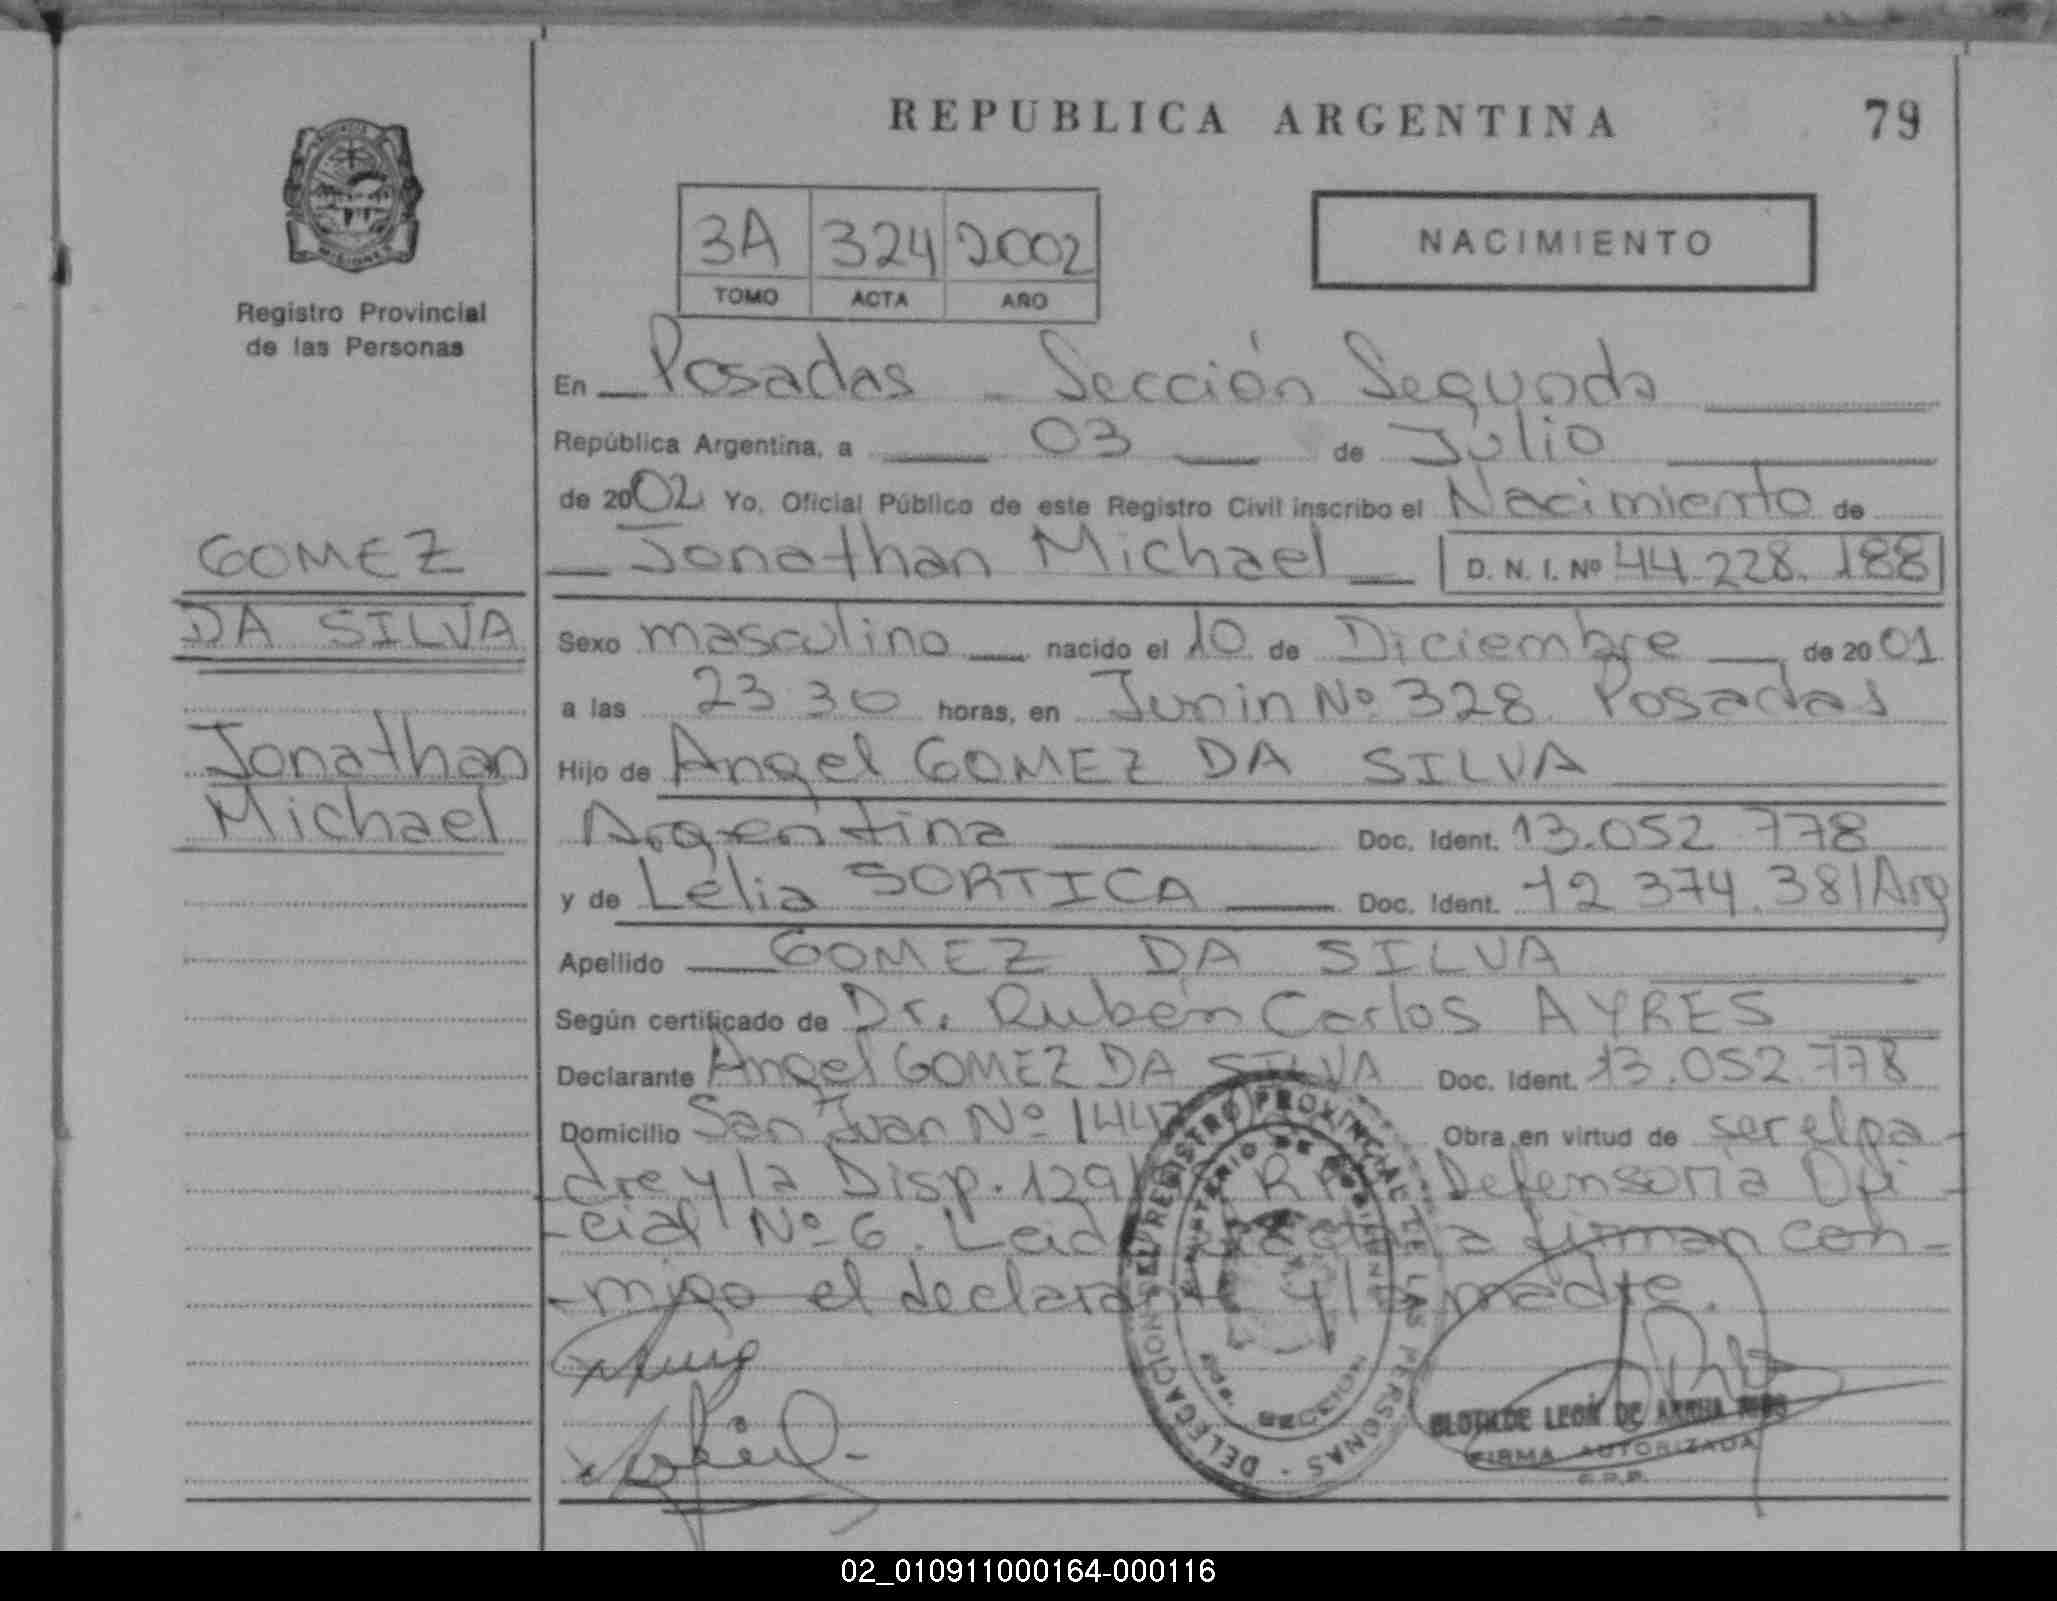 REPUBLICA ARGENTINA 79
MISIONES
Registro Provincial
de las Personas
3A 324 2002
TOMO ACTA AÑO
NACIMIENTO
En Posadas - Sección Segunda
República Argentina, a 03 de Julio
de 2002 Yo, Oficial Público de este Registro Civil inscribo el Nacimiento de
Jonathan Michael D. N. I. Nº 44.228.188
GOMEZ
DA SILVA
Jonathan
Michael
Sexo masculino nacido el 10 de Diciembre de 2001
a las 23 30 horas, en Junin Nº 328 Posadas
Hijo de Angel GOMEZ DA SILVA
Argentina Doc. Ident. 13.052.778
y de Lelia SORTICA Doc. Ident. 12 374.381/Arg
Apellido GOMEZ DA SILVA
Según certificado de Dr. Rubén Carlos AYRES
Declarante Angel GOMEZ DA SILVA Doc. Ident. 13.052.778
Domicilio San Juan Nº Obra en virtud de ser el pa-
-dre y la Disp. 129 Defensoria Ofi-
-cial Nº 6. firman con-
-migo el declarante y la madre.
DELEGACION REGISTRO PROVINCIAL DE LAS PERSONAS
MINISTERIO DE GOBIERNO
CLOTILDE LEON DE
FIRMA AUTORIZADA
02_010911000164-000116